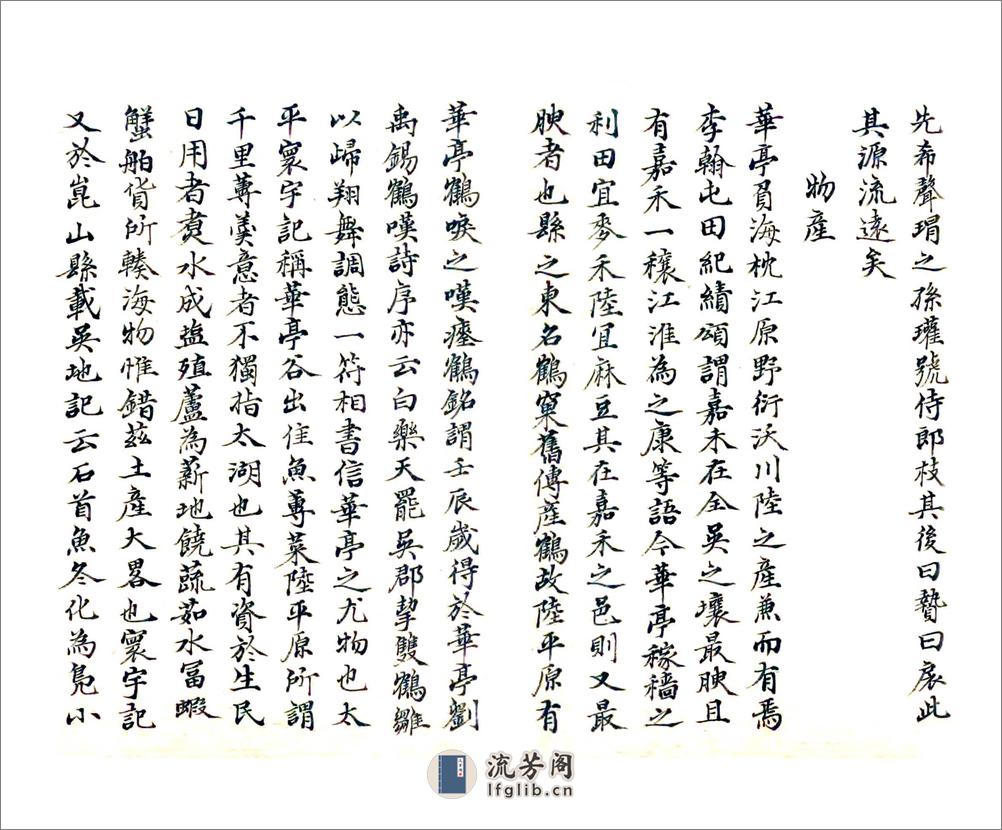 先希聲瑁之孫瓘號侍郎枝其後曰贄曰扆此
其源流遠矣
物産
華亭負海枕江原野衍沃川陸之産兼而有焉
李翰屯田紀績頌謂嘉禾在全吳之壤最腴且
有嘉禾一穰江淮為之康等語今華亭稼穡之
利田宜麥禾陸宜麻豆其在嘉禾之邑則又最
腴者也縣之東名鶴窠舊傳産鶴故陸平原有
華亭鶴唳之嘆瘞鶴銘謂壬辰歲得於華亭劉
禹錫鶴嘆詩序亦云白樂天罷吳郡挈雙鶴雛
以歸翔舞調態一符相書信華亭之尤物也太
平寰宇記稱華亭谷出佳魚蓴菜陸平原所謂
千里蓴羹意者不獨指太湖也其有資於生民
日用者煑水成塩殖蘆為薪地饒蔬茹水富暇
蟹舶貨所輳海物惟錯茲土産大畧也寰宇記
又於崑山縣載吳地記云石首魚冬化為鳧小
流芳阁
lfglib.cn